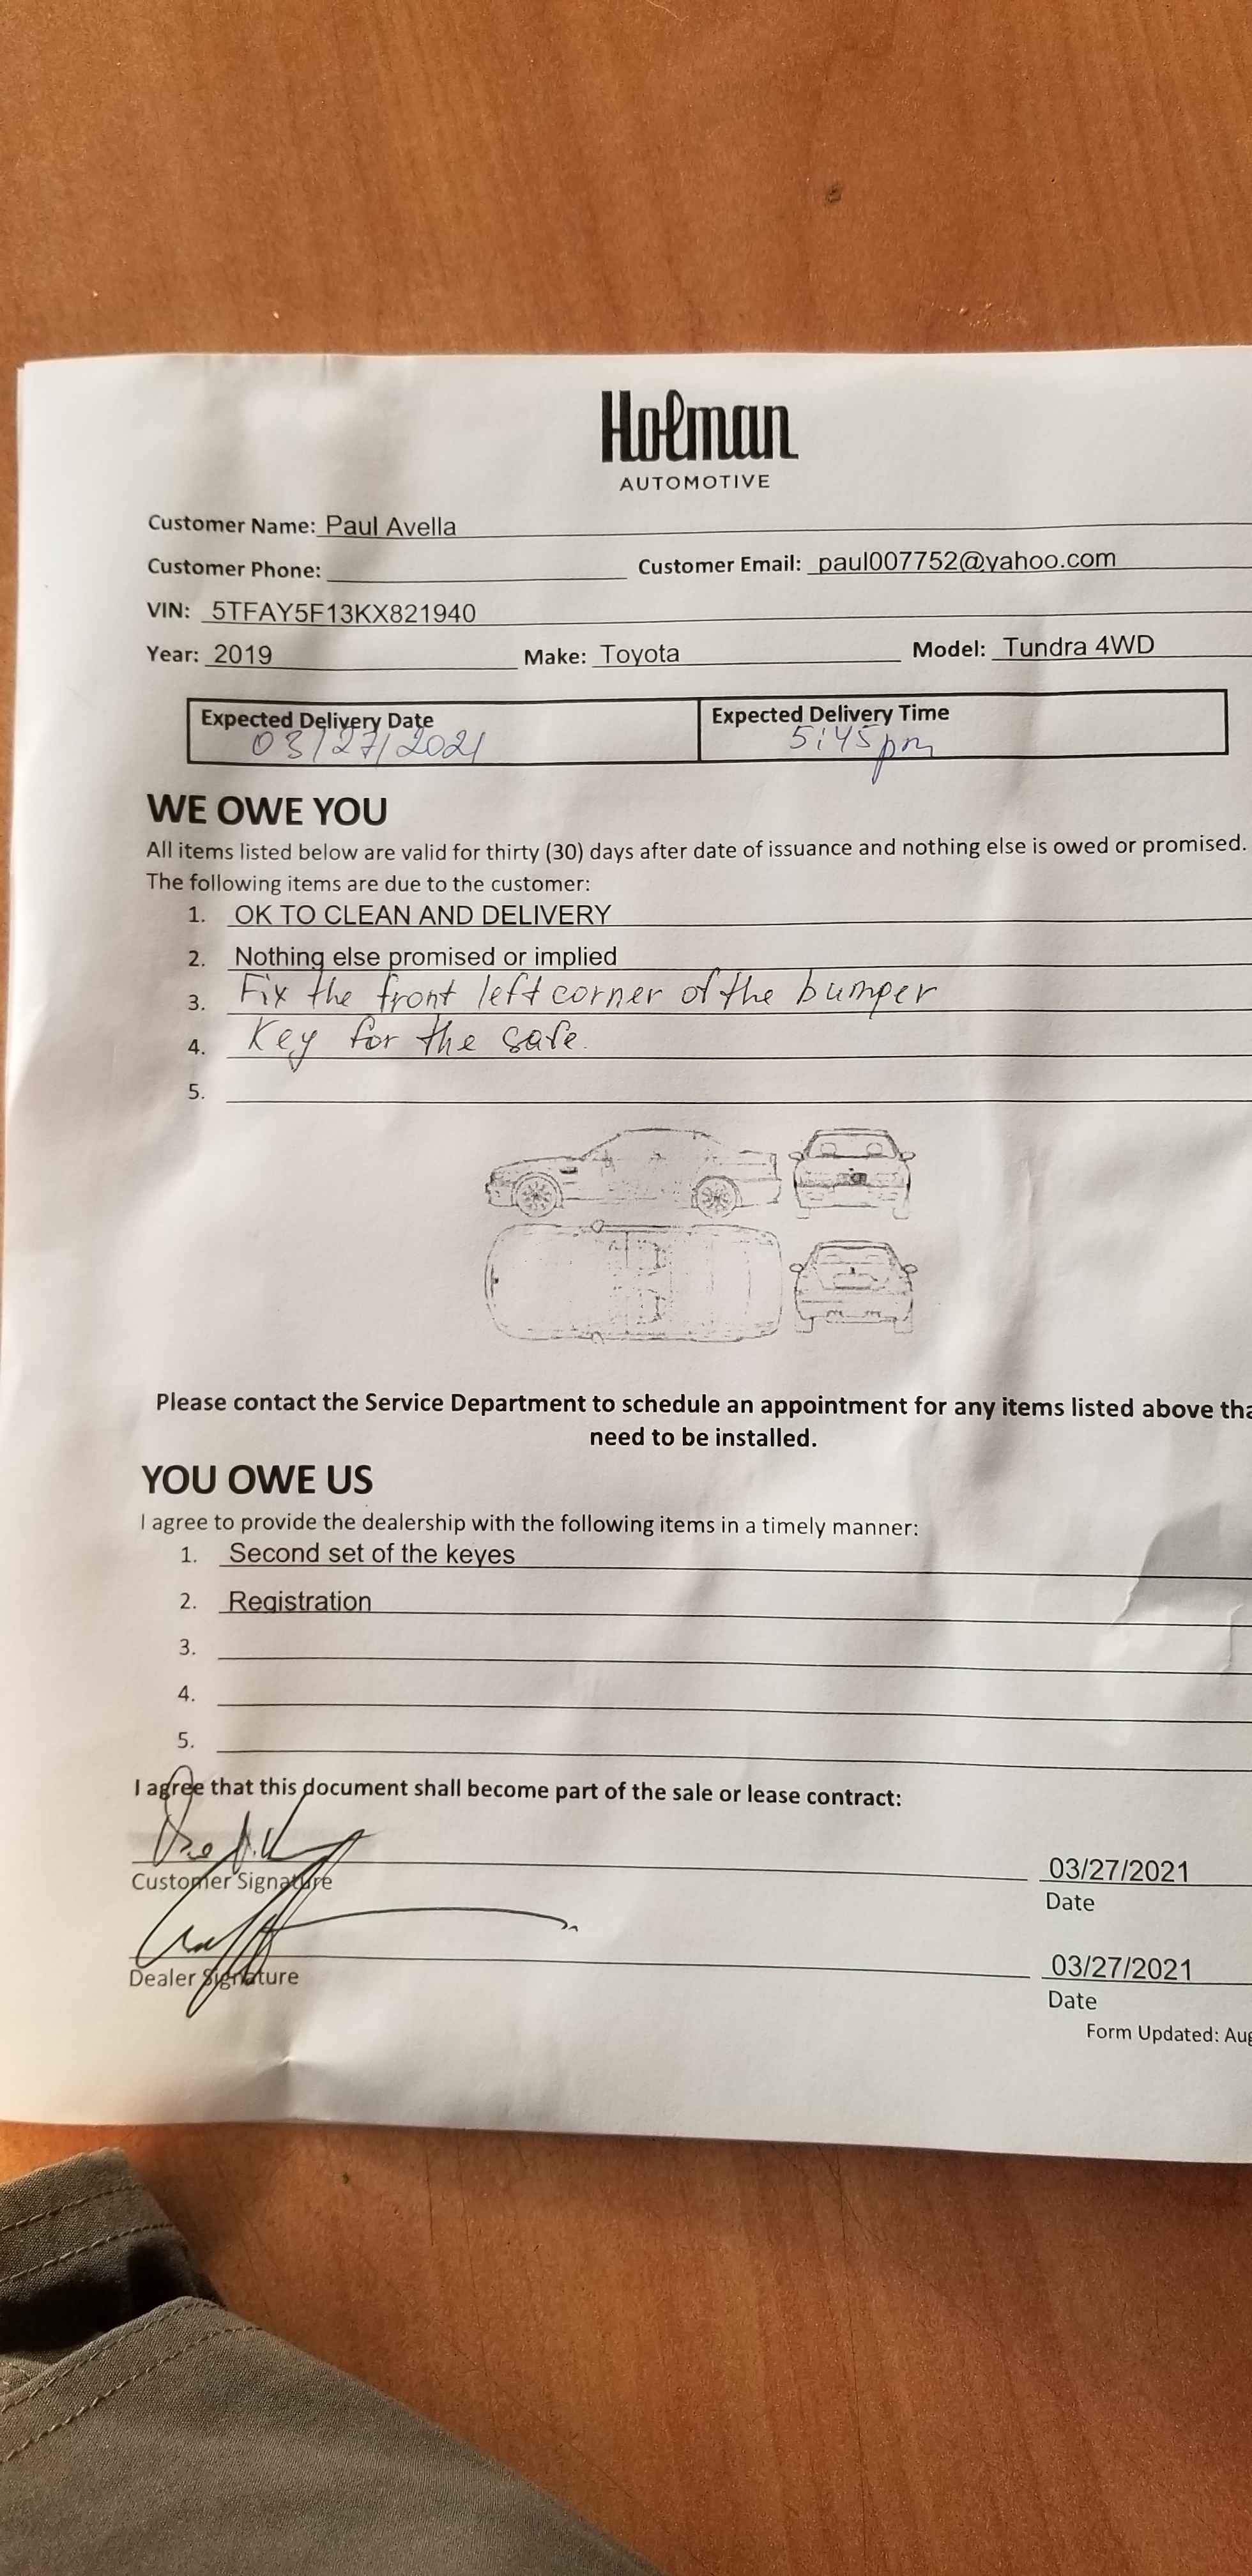 Holman
AUTOMOTIVE
Customer Name: Paul Avella
Customer Phone: Customer Email: paul007752@yahoo.com
VIN: 5TFAY5F13KX821940
Year: 2019 Make: Toyota Model: Tundra 4WD
Expected Delivery Date Expected Delivery Time
03/27/2021 5:45pm
WE OWE YOU
All items listed below are valid for thirty (30) days after date of issuance and nothing else is owed or promised.
The following items are due to the customer:
1. OK TO CLEAN AND DELIVERY
2. Nothing else promised or implied
3. Fix the front left corner of the bumper
4. Key for the safe.
5.
Please contact the Service Department to schedule an appointment for any items listed above tha
need to be installed.
YOU OWE US
I agree to provide the dealership with the following items in a timely manner:
1. Second set of the keyes
2. Registration
3.
4.
5.
I agree that this document shall become part of the sale or lease contract:
03/27/2021
Customer Signature Date
03/27/2021
Dealer Signature Date
Form Updated: Aug